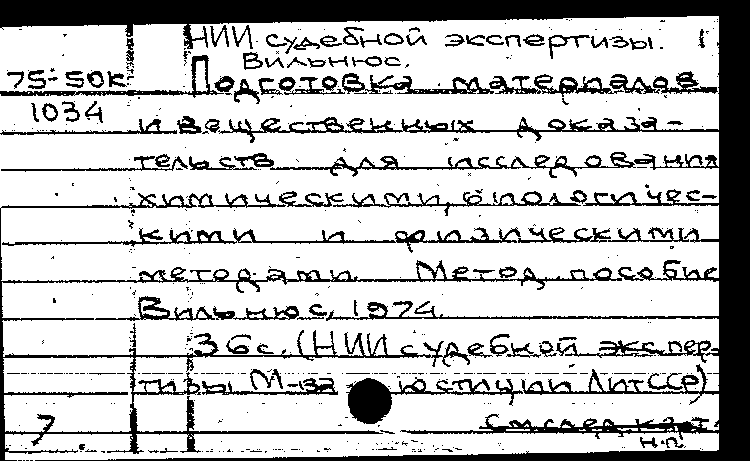 НИИ судебной экспертизы. 1
Вильнюс.
75-50к Подготовка материалов
1034
и вещественных доказа-
тельств для исследования
химическими, биологичес-
кими и физическими
методами. Метод. пособие
Вильнюс, 1974.
36с. (НИИ судебной экспер-
тизы М-ва юстиции ЛитССР)
См след карт.
7. н.п.